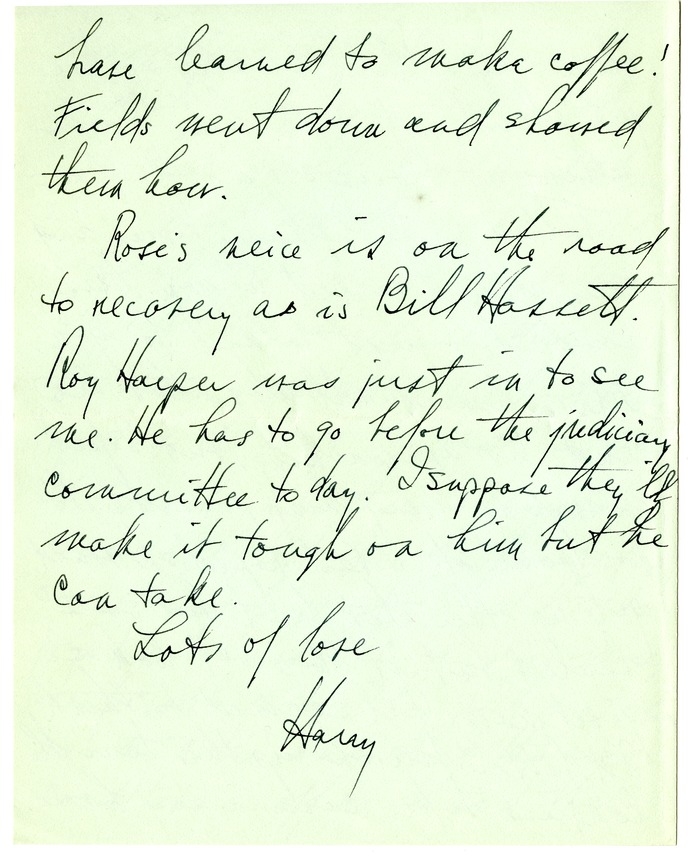 have learned to make coffee!
Fields went down and showed
them how.
Rose's neice is on the road
to recovery as is Bill Hassett.
Roy Harper was just in to see
me. He has to go before the judiciary
committee today. I suppose they'll
make it tough on him but he
can take.
Lots of love
Harry